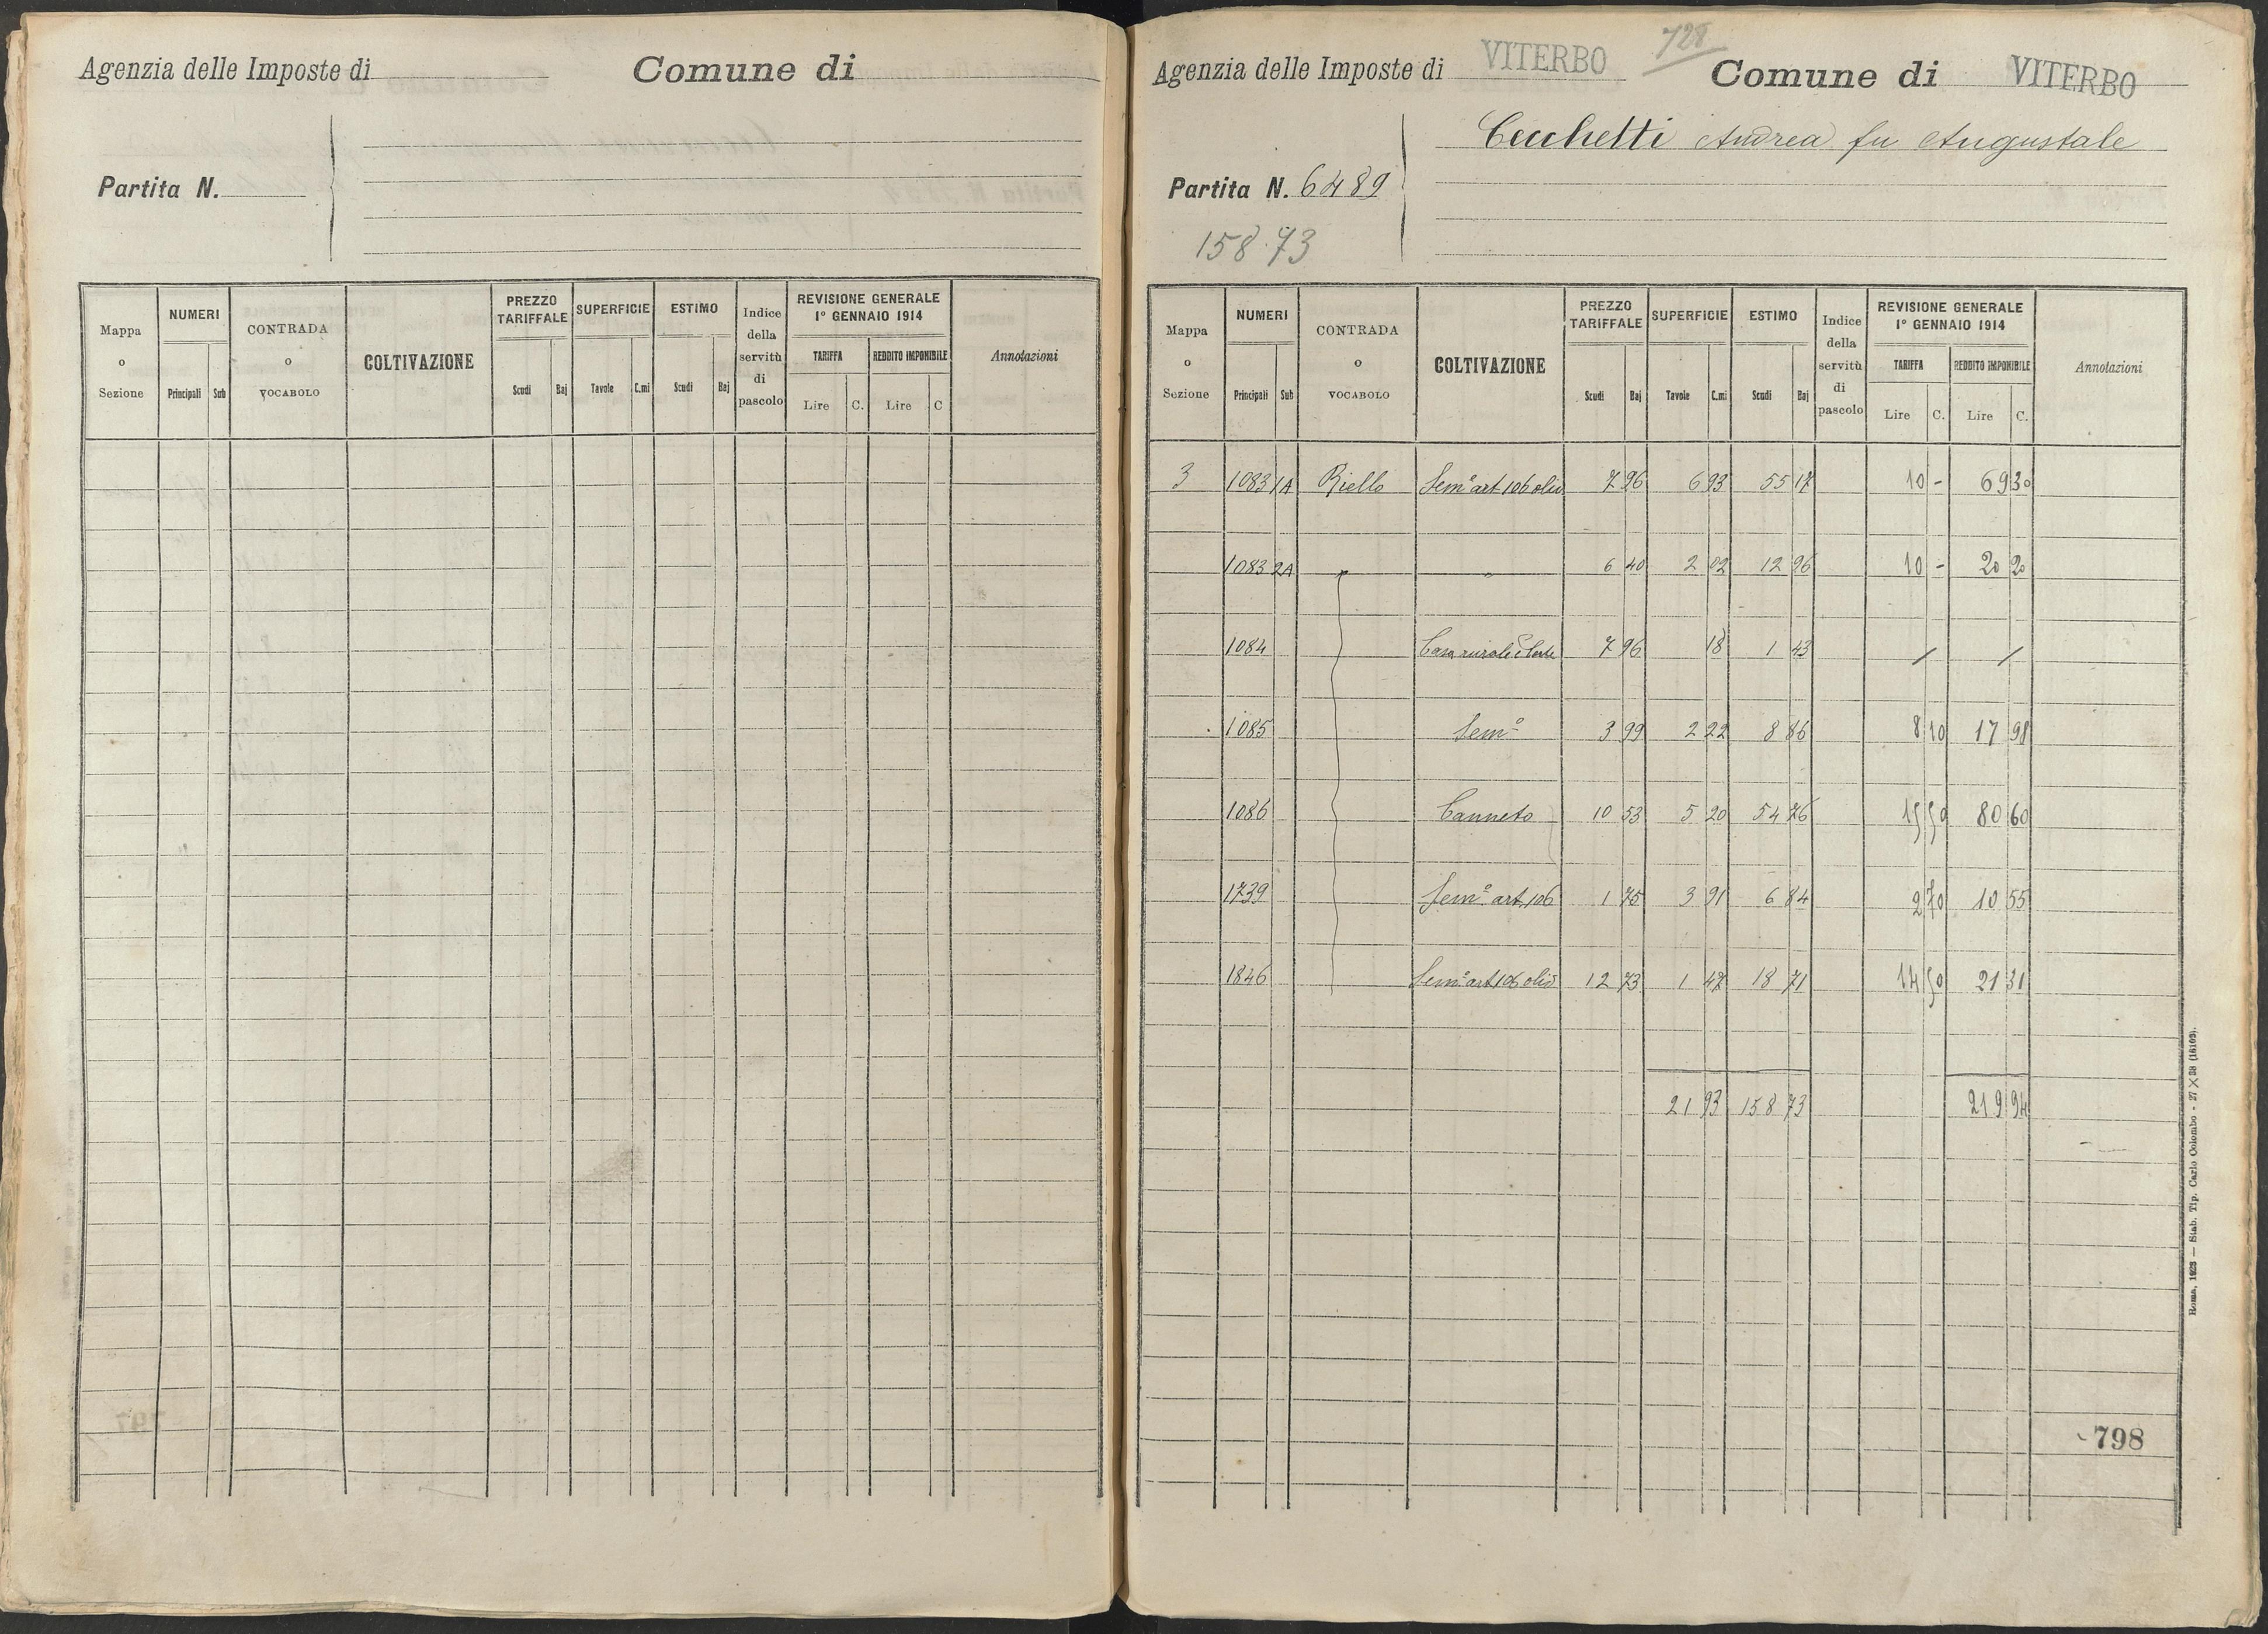 Agenzia delle Imposte di Comune di
Partita N.
Mappa o Sezione NUMERI Principali Sub CONTRADA o VOCABOLO COLTIVAZIONE PREZZO TARIFFALE Scudi Baj SUPERFICIE Tavole C.mi ESTIMO Scudi Baj Indice della servitù di pascolo REVISIONE GENERALE 1° GENNAIO 1914 TARIFFA Lire C. REDDITO IMPONIBILE Lire C Annotazioni
728
Agenzia delle Imposte di VITERBO Comune di VITERBO
Cecchetti Andrea fu Augustale
Partita N. 6489
158.73
Mappa o Sezione NUMERI Principali Sub CONTRADA o VOCABOLO COLTIVAZIONE PREZZO TARIFFALE Scudi Baj SUPERFICIE Tavole C.mi ESTIMO Scudi Baj Indice della servitù di pascolo REVISIONE GENERALE 1° GENNAIO 1914 TARIFFA Lire C. REDDITO IMPONIBILE Lire C. Annotazioni
3 1083 1A Riello Semo art 106 oliv 7 96 6 93 55 17 10 - 69 30
1083 2A " " 6 40 2 02 12 96 10 - 20 20
1084 Casa rurale 7 96 18 1 43 / /
1085 Semo 3 99 2 22 8 86 8 10 17 98
1086 Canneto 10 53 5 20 54 76 15 50 80 60
1739 Semo art 106 1 75 3 91 6 84 2 70 10 55
1846 Semo art 106 oliv 12 73 1 47 18 71 14 50 21 31
21 93 158 73 219 94
798
Roma, 1923 — Stab. Tip. Carlo Colombo - 27 X 38 (16103).